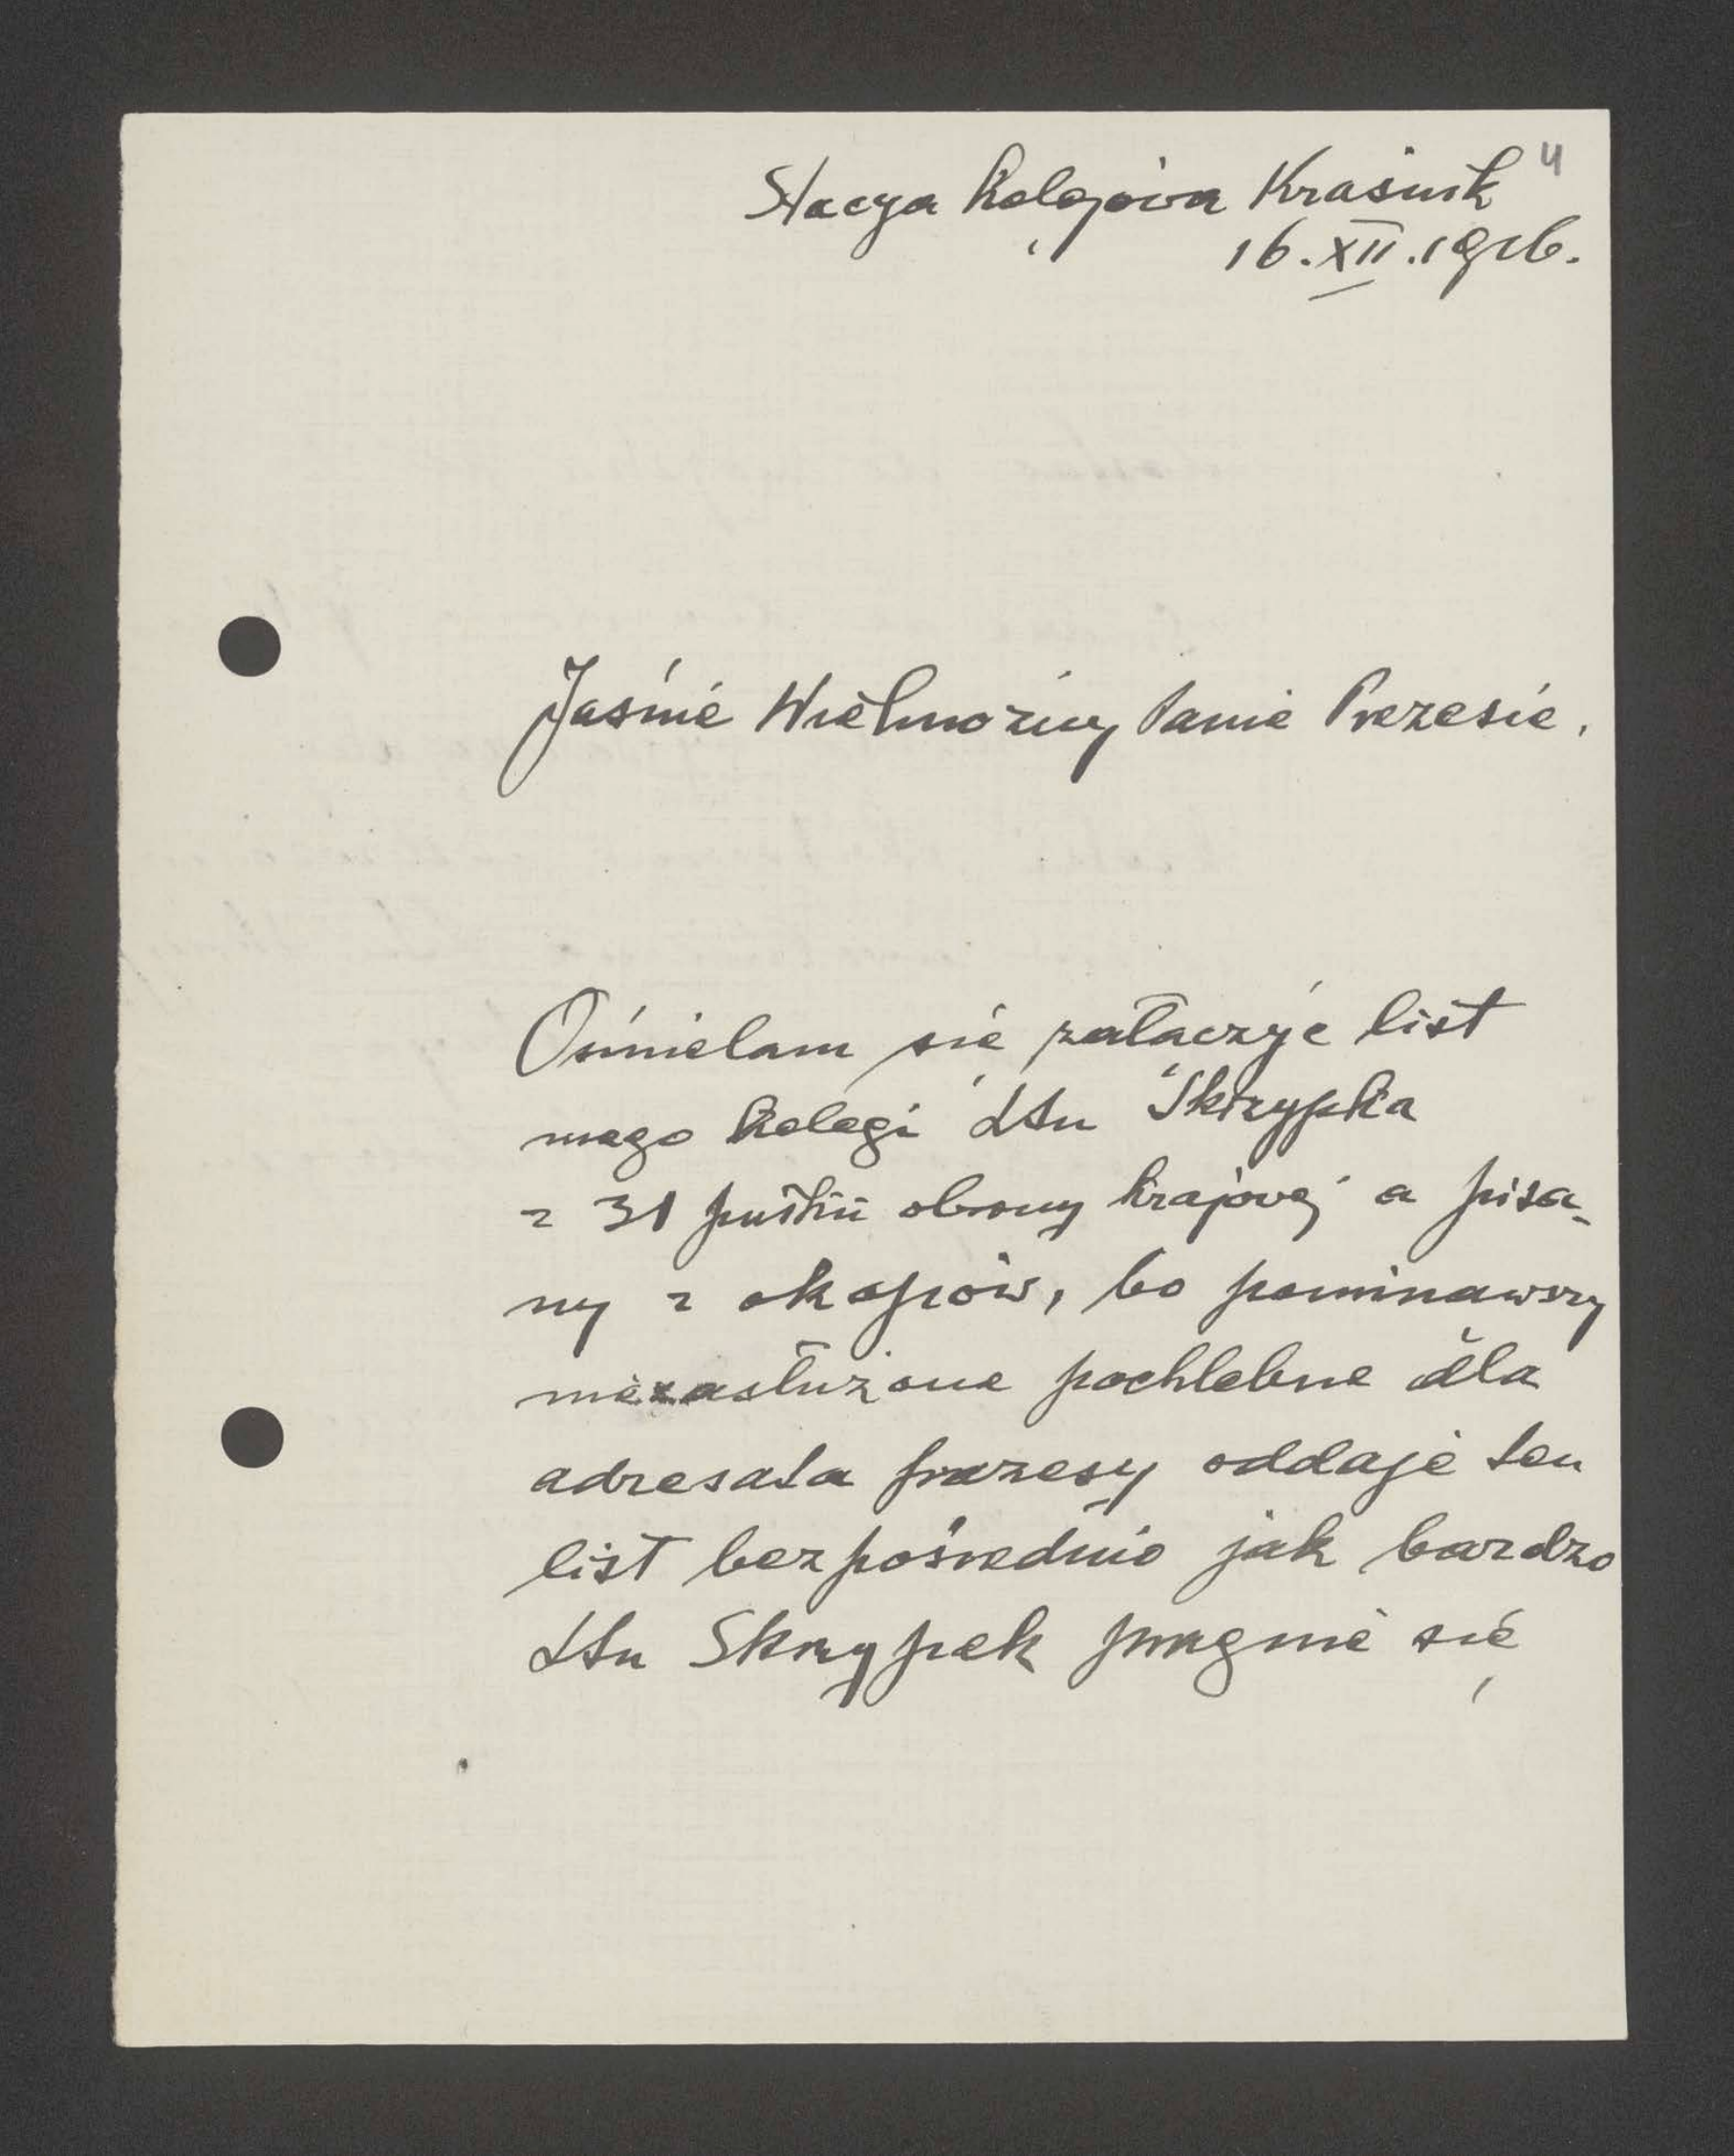 Stacya kolejowa Kraśnik 4
16.XII.1916.
Jaśnie Wielmożny Panie Prezesie,
Ośmielam się załączyć list
mego kolegi Dtu Skrzypka
z 31 pułku obrony krajowej a pisa-
ny z okopów, bo pominąwszy
niezasłużone pochlebne dla
adresata frazesy oddaje ten
list bezpośrednio jak bardzo
Dtu Skrzypek pragnie się